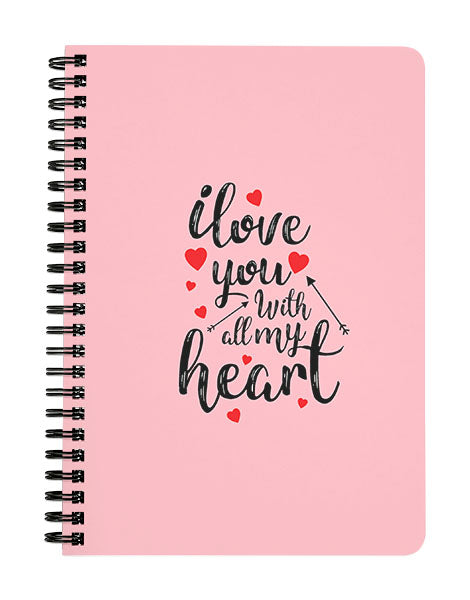 i love
you
With
all my
heart